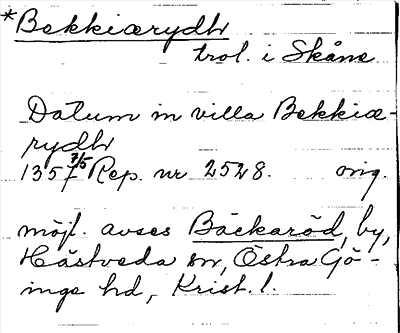 *Bekkiærydh
trol. i Skåne
Datum in villa Bekkiæ-
rydh
1357 3/5 Rep. nr 2528. orig.
möjl. avses Bäckaröd, by,
Hästveda sn, Östra Gö-
inge hd, Krist. l.